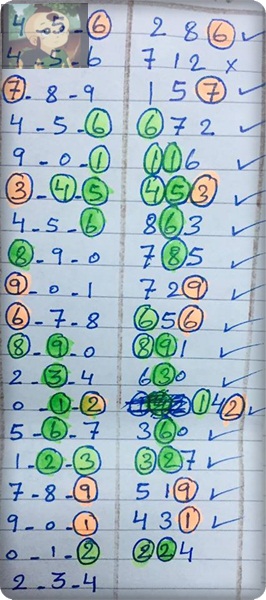 4-5-6 286 ✓
4-5-6 712 ×
7-8-9 157 ✓
4-5-6 672 ✓
9-0-1 116 ✓
3-4-5 453 ✓
4-5-6 863 ✓
8-9-0 785 ✓
9-0-1 729 ✓
6-7-8 656 ✓
8-9-0 891 ✓
2-3-4 630 ✓
0-1-2 142 ✓
5-6-7 360 ✓
1-2-3 327 ✓
7-8-9 519 ✓
9-0-1 431 ✓
0-1-2 224 ✓
2-3-4